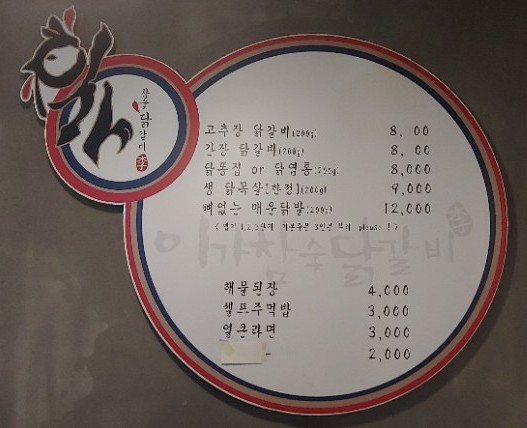 참숯 닭갈비
고추장 닭갈비(200g) 8, 00
간장 닭갈비(200g) 8, 00
닭똥집 or 닭염통(250g) 8,000
생 닭목살[한정](200g) 9,000
뼈없는 매운닭발(200g) 12,000
( 맵기 1,2,3단계 기본주문 3인분 부터 please ! )
이가참숯닭갈비
해물된장 4,000
셀프주먹밥 3,000
얼큰라면 3,000
2,000